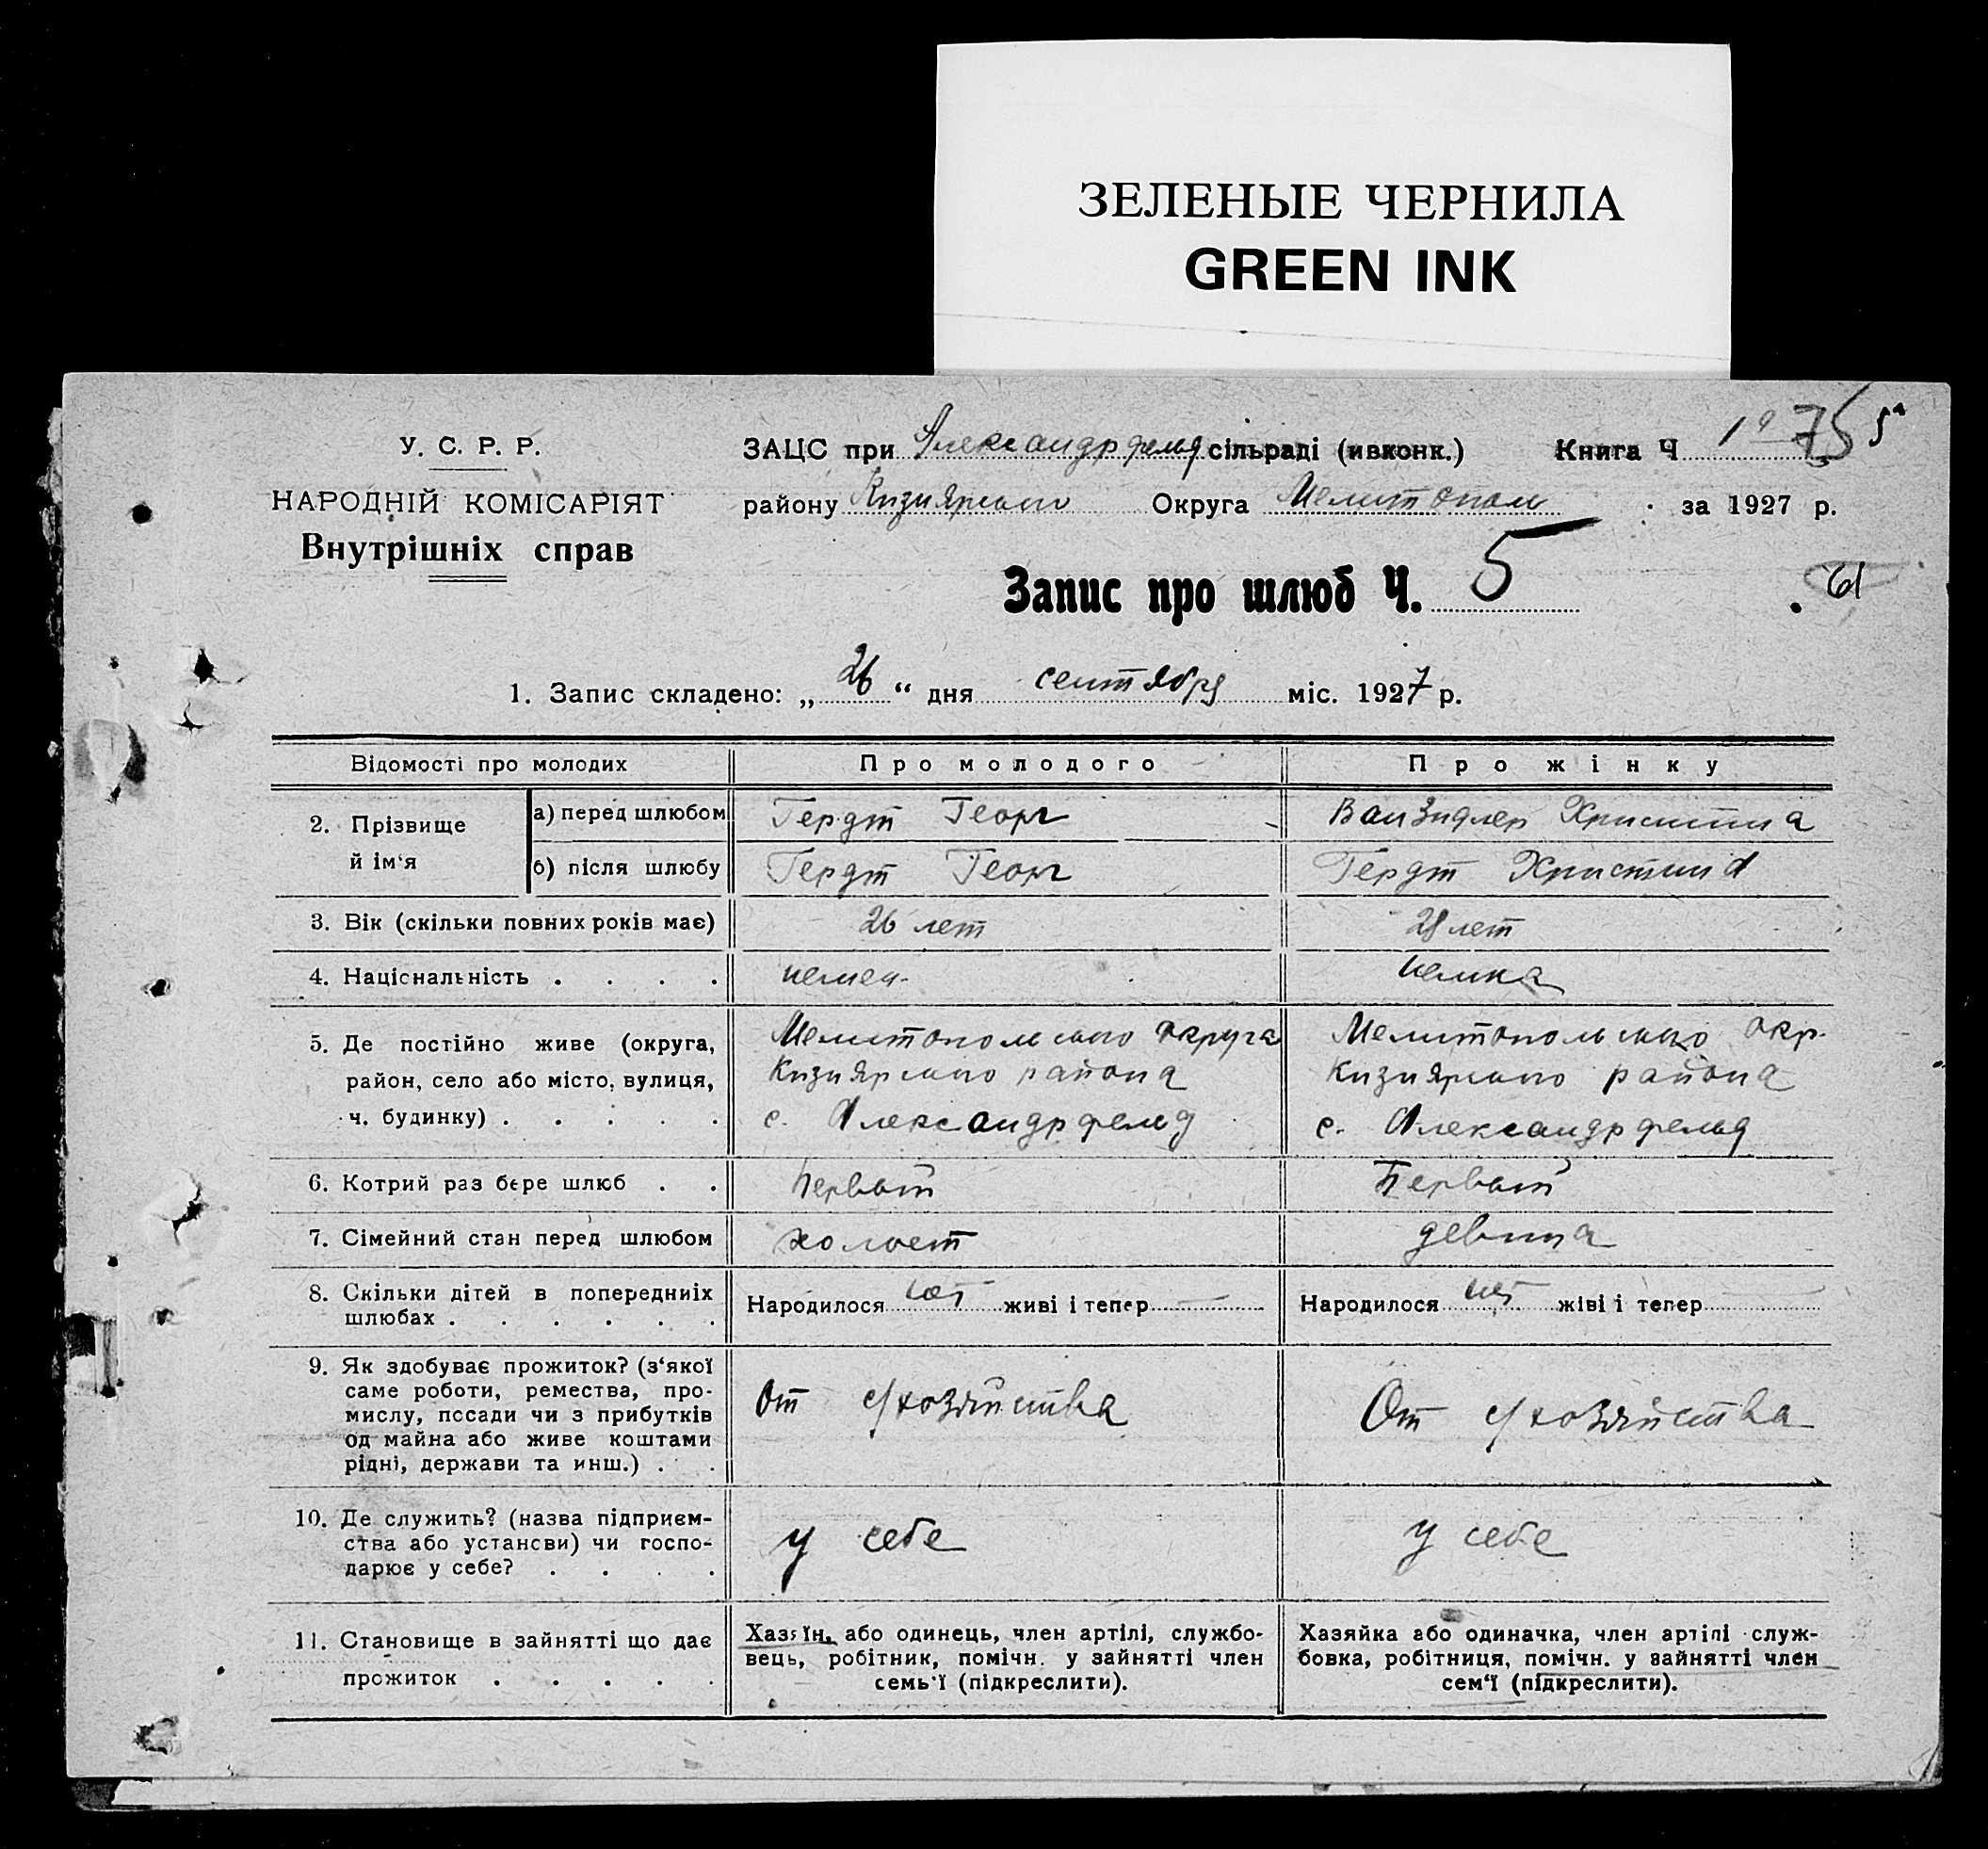 ЗЕЛЕНЫЕ ЧЕРНИЛА
GREEN INK
У. С. Р. Р.
НАРОДНІЙ КОМІСАРІЯТ
Внутрішніх справ
ЗАЦС при Александрфельд сільраді (ивконк.) Книга Ч
району Кизиярского Округа Мелитополь за 1927 р.
Запис про шлюб Ч. 5
61
1. Запис складено: „ 26 “ дня сентября міс. 1927 р.
Відомості про молодих
Про молодого
Про жінку
2. Прізвище й ім‘я
а) перед шлюбом
Гердт Георг
Христина
б) після шлюбу
Гердт Георг
Гердт Христина
3. Вік (скільки повних років має)
26 лет
28 лет
4. Національність . . . .
немец
немка
5. Де постійно живе (округа,
район, село або місто, вулиця,
ч. будинку) . . . . .
Мелитопольского округа
Кизиярского района
с. Александрфельд
Мелитопольского окр.
Кизиярского района
с. Александрфельд
6. Котрий раз бере шлюб . .
Первый
Первый
7. Сімейний стан перед шлюбом
холост
девица
8. Скільки дітей в попередниіх
шлюбах . . . . . .
Народилося нет живі і тепер —
Народилося нет жіві і тепер —
9. Як здобуває прожиток? (з‘якої
саме роботи, ремества, про-
мислу, посади чи з прибутків
од майна або живе коштами
рідні, держави та инш.) . .
От с/хозяйства
От с/хозяйства
10. Де служить? (назва підприєм-
ства або устансви) чи госпо-
дарює у себе? . . . .
у себе
у себе
11. Становище в зайнятті що дає
прожиток . . . . .
Хазяїн, або одинець, член артілі, службо-
вець, робітник, помічн. у зайнятті член
семь‘ї (підкреслити).
Хазяйка або одиначка, член артілі служ-
бовка, робітниця, помічн. у зайнятті член
сем‘ї (підкреслити).